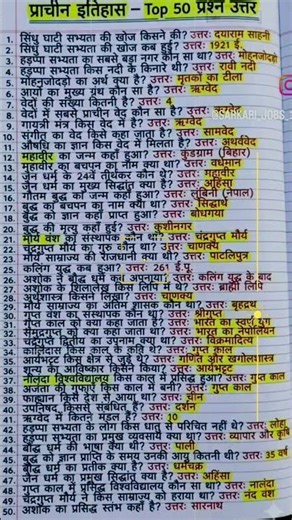 प्राचीन इतिहास – Top 50 प्रश्न उत्तर
1. सिंधु घाटी सभ्यता की खोज किसने की? उत्तर: दयाराम साहनी
2. सिंधु घाटी सभ्यता की खोज कब हुई? उत्तर: 1921 ई.
3. हड़प्पा सभ्यता का सबसे बड़ा नगर कौन सा था? उत्तर: मोहनजोदड़ो
4. हड़प्पा सभ्यता किस नदी के किनारे थी? उत्तर: रावी नदी
5. मोहनजोदड़ो का अर्थ क्या है? उत्तर: मृतकों का टीला
6. आर्यों का मुख्य ग्रंथ कौन सा है? उत्तर: ऋग्वेद
7. वेदों की संख्या कितनी है? उत्तर: 4
8. वेद में सबसे प्राचीन वेद कौन सा है? उत्तर: ऋग्वेद
9. गायत्री मंत्र किस वेद में है? उत्तर: ऋग्वेद
@SARKARI_JOBS_
10. संगीत का वेद किसे कहा जाता है? उत्तर: सामवेद
11. औषधि का ज्ञान किस वेद में मिलता है? उत्तर: अथर्ववेद
12. महावीर का जन्म कहाँ हुआ? उत्तर: कुंडग्राम (बिहार)
13. महावीर का बचपन का नाम क्या था? उत्तर: वर्धमान
14. जैन धर्म के 24वें तीर्थंकर कौन थे? उत्तर: महावीर
15. जैन धर्म का मुख्य सिद्धांत क्या है? उत्तर: अहिंसा
16. गौतम बुद्ध का जन्म कहाँ हुआ? उत्तर: लुंबिनी (नेपाल)
17. बुद्ध का बचपन का नाम क्या था? उत्तर: सिद्धार्थ
18. बुद्ध को ज्ञान कहाँ प्राप्त हुआ? उत्तर: बोधगया
20. बुद्ध की मृत्यु कहाँ हुई? उत्तर: कुशीनगर
21. मौर्य वंश का संस्थापक कौन था? उत्तर: चंद्रगुप्त मौर्य
22. चंद्रगुप्त मौर्य का गुरु कौन था? उत्तर: चाणक्य
24. मौर्य साम्राज्य की राजधानी क्या थी? उत्तर: पाटलिपुत्र
25. कलिंग युद्ध कब हुआ? उत्तर: 261 ई.पू.
26. अशोक ने बौद्ध धर्म कब अपनाया? उत्तर: कलिंग युद्ध के बाद
27. अशोक के शिलालेख किस लिपि में थे? उत्तर: ब्राह्मी लिपि
28. अर्थशास्त्र किसने लिखा? उत्तर: चाणक्य
29. मौर्य साम्राज्य का अंतिम शासक कौन था? उत्तर: बृहद्रथ
30. गुप्त वंश का संस्थापक कौन था? उत्तर: श्रीगुप्त
31. गुप्त काल को क्या कहा जाता है? उत्तर: भारत का स्वर्ण युग
32. समुद्रगुप्त को क्या कहा जाता था? उत्तर: भारत का नेपोलियन
33. चंद्रगुप्त द्वितीय का उपनाम क्या था? उत्तर: विक्रमादित्य
34. कालिदास किस काल के कवि थे? उत्तर: गुप्त काल
35. आर्यभट्ट किस क्षेत्र से जुड़े थे? उत्तर: गणित और खगोलशास्त्र
36. शून्य का आविष्कार किसने किया? उत्तर: आर्यभट्ट
37. नालंदा विश्वविद्यालय किस काल में प्रसिद्ध हुआ? उत्तर: गुप्त काल
38. अजंता की गुफाएँ किस काल में बनी? उत्तर: गुप्त काल
39. फाह्यान किस देश से आया था? उत्तर: चीन
40. उपनिषद किससे संबंधित हैं? उत्तर: दर्शन
41. ऋग्वेद में कितने मंडल हैं? उत्तर: 10
42. हड़प्पा सभ्यता के लोग किस धातु से परिचित नहीं थे? उत्तर: लोहा
43. हड़प्पा सभ्यता का प्रमुख व्यवसाय क्या था? उत्तर: व्यापार और कृषि
44. बौद्ध धर्म की भाषा क्या थी? उत्तर: पाली
45. बुद्ध की ज्ञान प्राप्ति के समय उनकी आयु कितनी थी? उत्तर: 35 वर्ष
46. बौद्ध धर्म का प्रतीक क्या है? उत्तर: धर्मचक्र
47. जैन धर्म का प्रमुख सिद्धांत क्या है? उत्तर: अहिंसा
48. गुप्त काल में प्रसिद्ध विश्वविद्यालय कौन सा था? उत्तर: नालंदा
49. चंद्रगुप्त मौर्य ने किस साम्राज्य को हराया था? उत्तर: नंद वंश
50. अशोक का प्रसिद्ध स्तंभ कहाँ है? उत्तर: सारनाथ